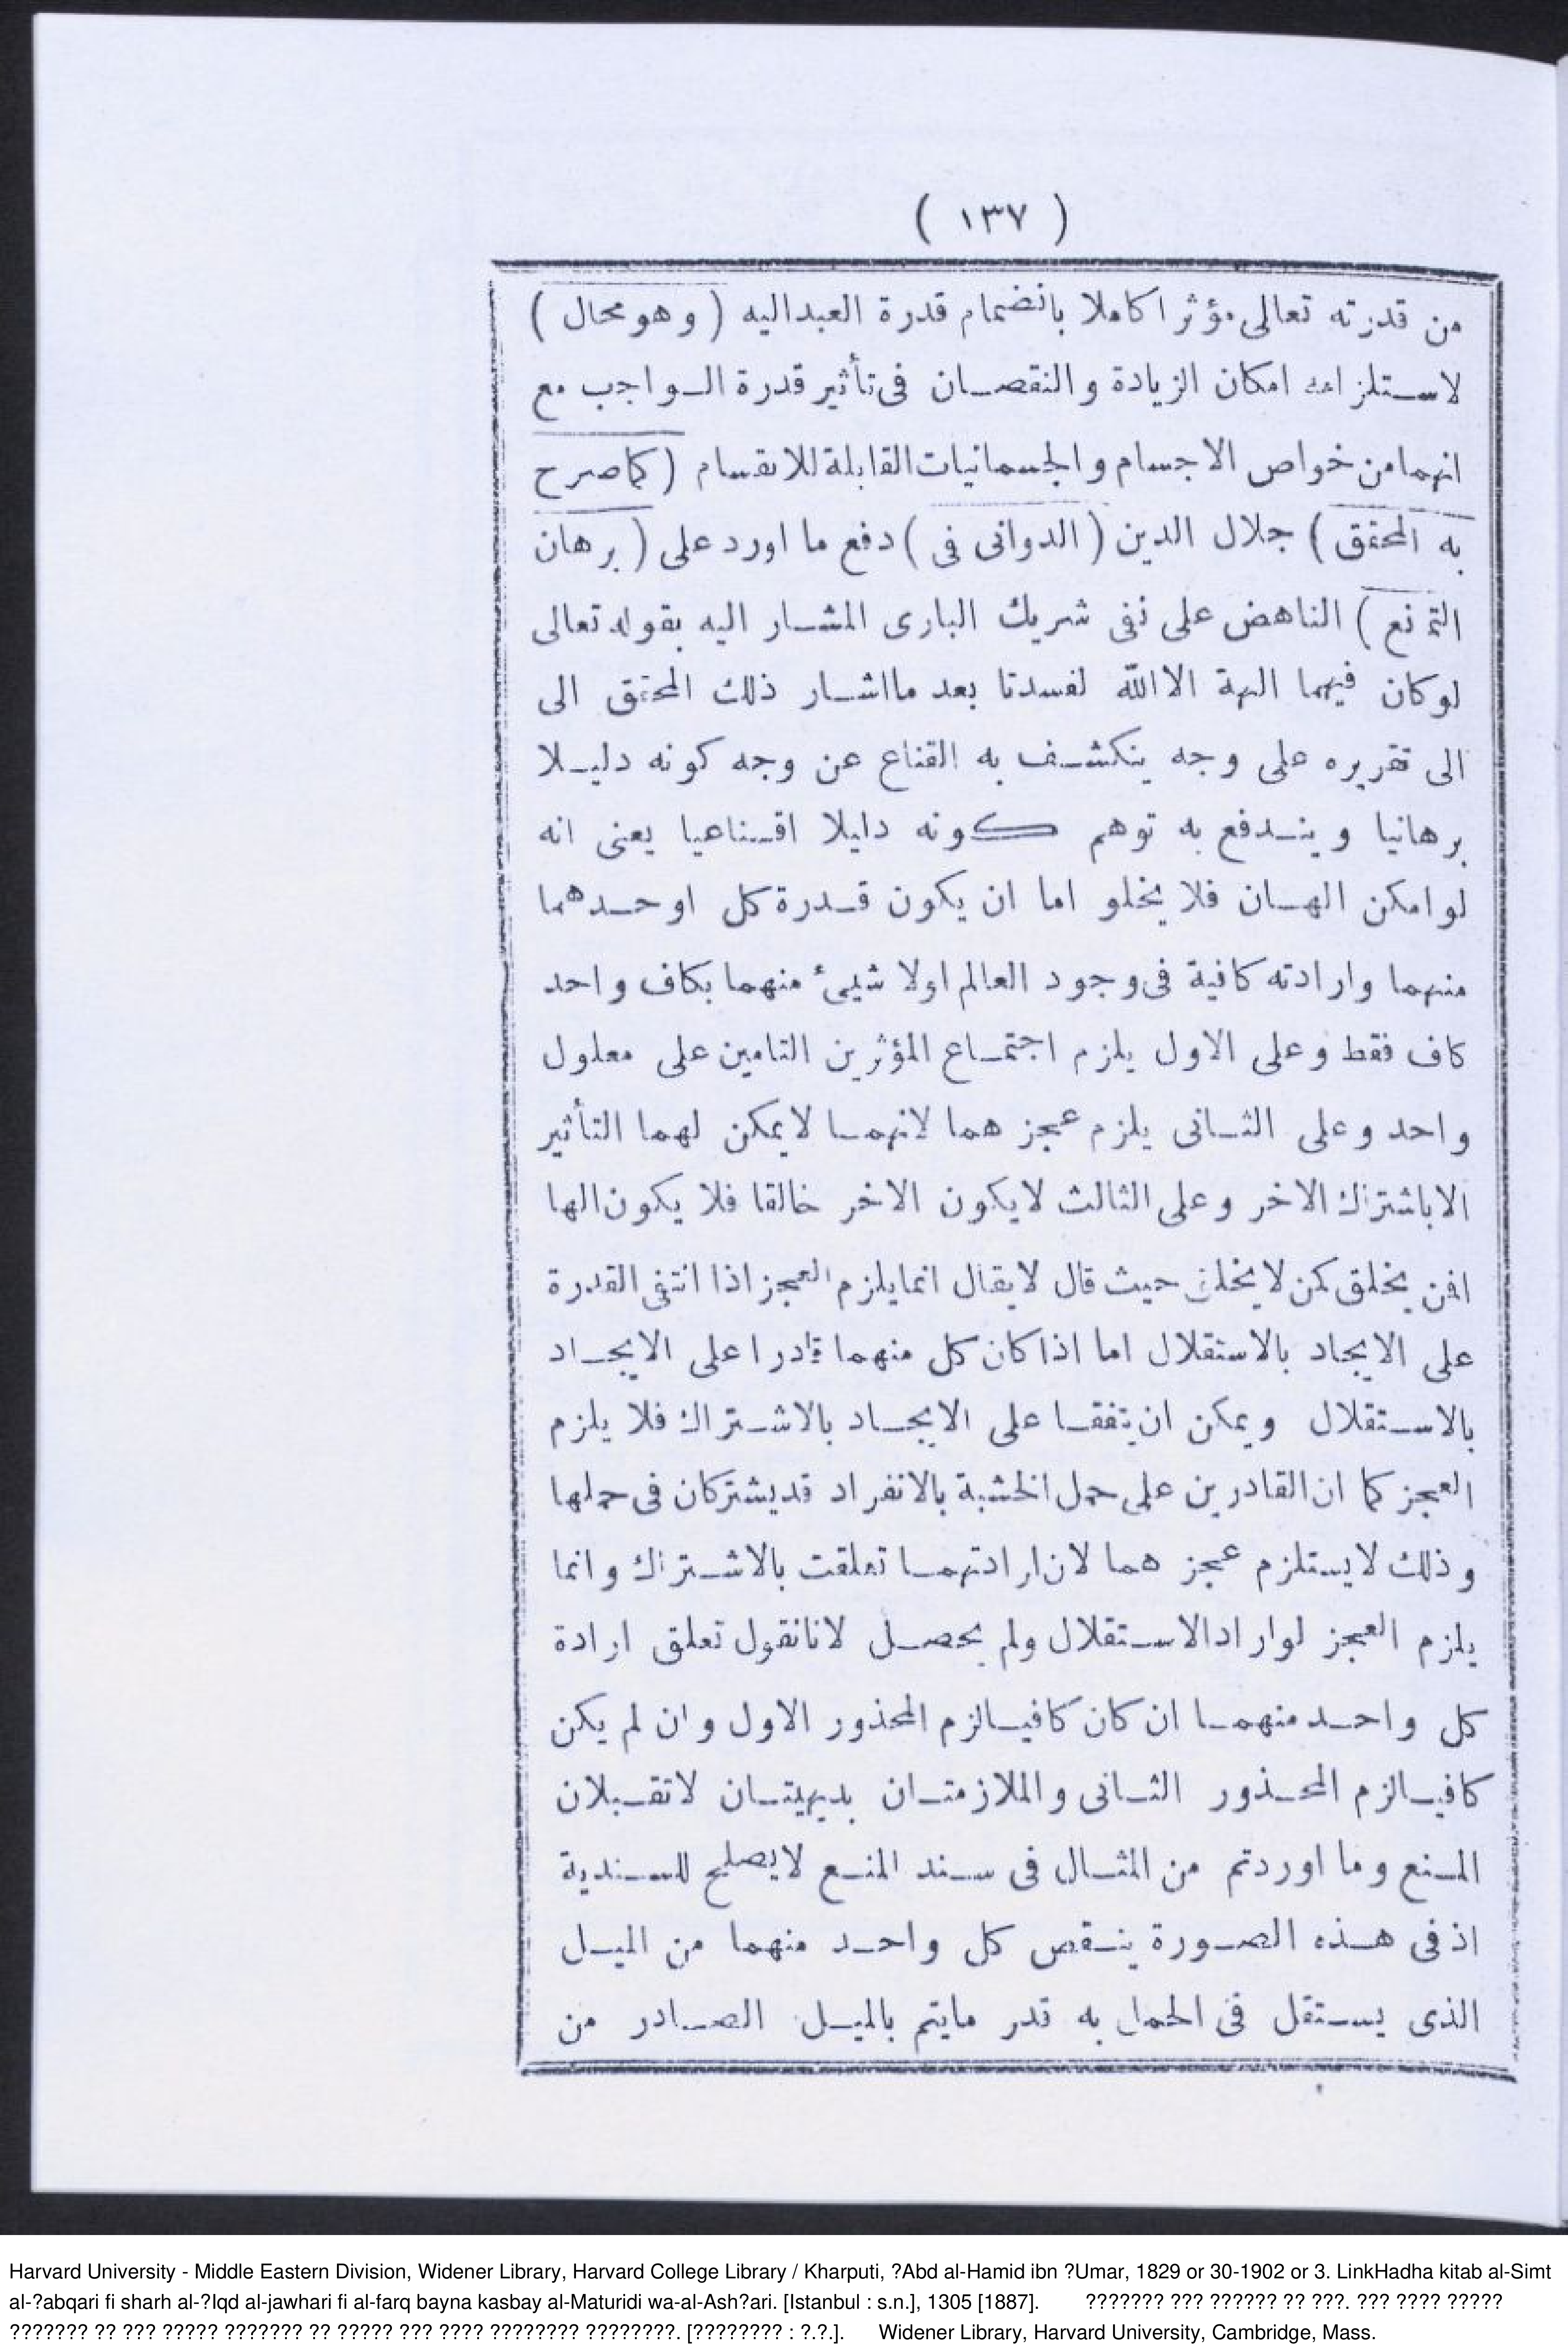 ( ١٣٧ )
من قدرته تعالى مؤثرا كاملا بانضمام قدرة العبد اليه ( وهو محال )
لاستلزامه امكان الزيادة والنقصان فى تأثير قدرة الواجب مع
انهما من خواص الاجسام والجسمانيات القابلة للانقسام ( كما صرح
به المحقق ) جلال الدين ( الدوانى فى ) دفع ما اورد على ( برهان
التمانع ) الناهض على نفى شريك البارى المشار اليه بقوله تعالى
لوكان فيهما الهة الا الله لفسدتا بعد ما اشار ذلك المحقق الى
الى تقريره على وجه ينكشف به القناع عن وجه كونه دليلا
برهانيا ويندفع به توهم كونه دليلا اقناعيا يعنى انه
لو امكن الهان فلا يخلو اما ان يكون قدرة كل او حدهما
منهما وارادته كافية فى وجود العالم اولا شيئ منهما بكاف واحد
كاف فقط وعلى الاول يلزم اجتماع المؤثرين التامين على معلول
واحد وعلى الثانى يلزم عجز هما لانهما لايمكن لهما التأثير
الا باشتراك الاخر وعلى الثالث لايكون الاخر خالقا فلا يكون الها
افمن يخلق كمن لا يخلق حيث قال لايقال انما يلزم العجز اذا انتفى القدرة
على الايجاد بالاستقلال اما اذا كان كل منهما قادرا على الايجاد
بالاستقلال ويمكن ان يتفقا على الايجاد بالاشتراك فلا يلزم
العجز كما ان القادرين على حمل الخشبة بالانفراد قد يشتركان فى حملها
وذلك لايستلزم عجز هما لان ارادتهما تعلقت بالاشتراك وانما
يلزم العجز لو اراد الاستقلال ولم يحصل لانا نقول تعلق ارادة
كل واحد منهما ان كان كافيا لزم المحذور الاول وان لم يكن
كافيا لزم المحذور الثانى والملازمتان بديهيتان لاتقبلان
المنع وما اوردتم من المثال فى سند المنع لايصلح للسندية
اذ فى هذه الصورة ينقص كل واحد منهما من الميل
الذى يستقل فى الحمل به قدر مايتم بالميل الصادر من
Harvard University - Middle Eastern Division, Widener Library, Harvard College Library / Kharputi, ?Abd al-Hamid ibn ?Umar, 1829 or 30-1902 or 3. LinkHadha kitab al-Simt
al-?abqari fi sharh al-?Iqd al-jawhari fi al-farq bayna kasbay al-Maturidi wa-al-Ash?ari. [Istanbul : s.n.], 1305 [1887]. ??????? ??? ?????? ?? ???. ??? ???? ?????
??????? ?? ??? ????? ??????? ?? ????? ??? ???? ???????? ????????. [???????? : ?.?.]. Widener Library, Harvard University, Cambridge, Mass.